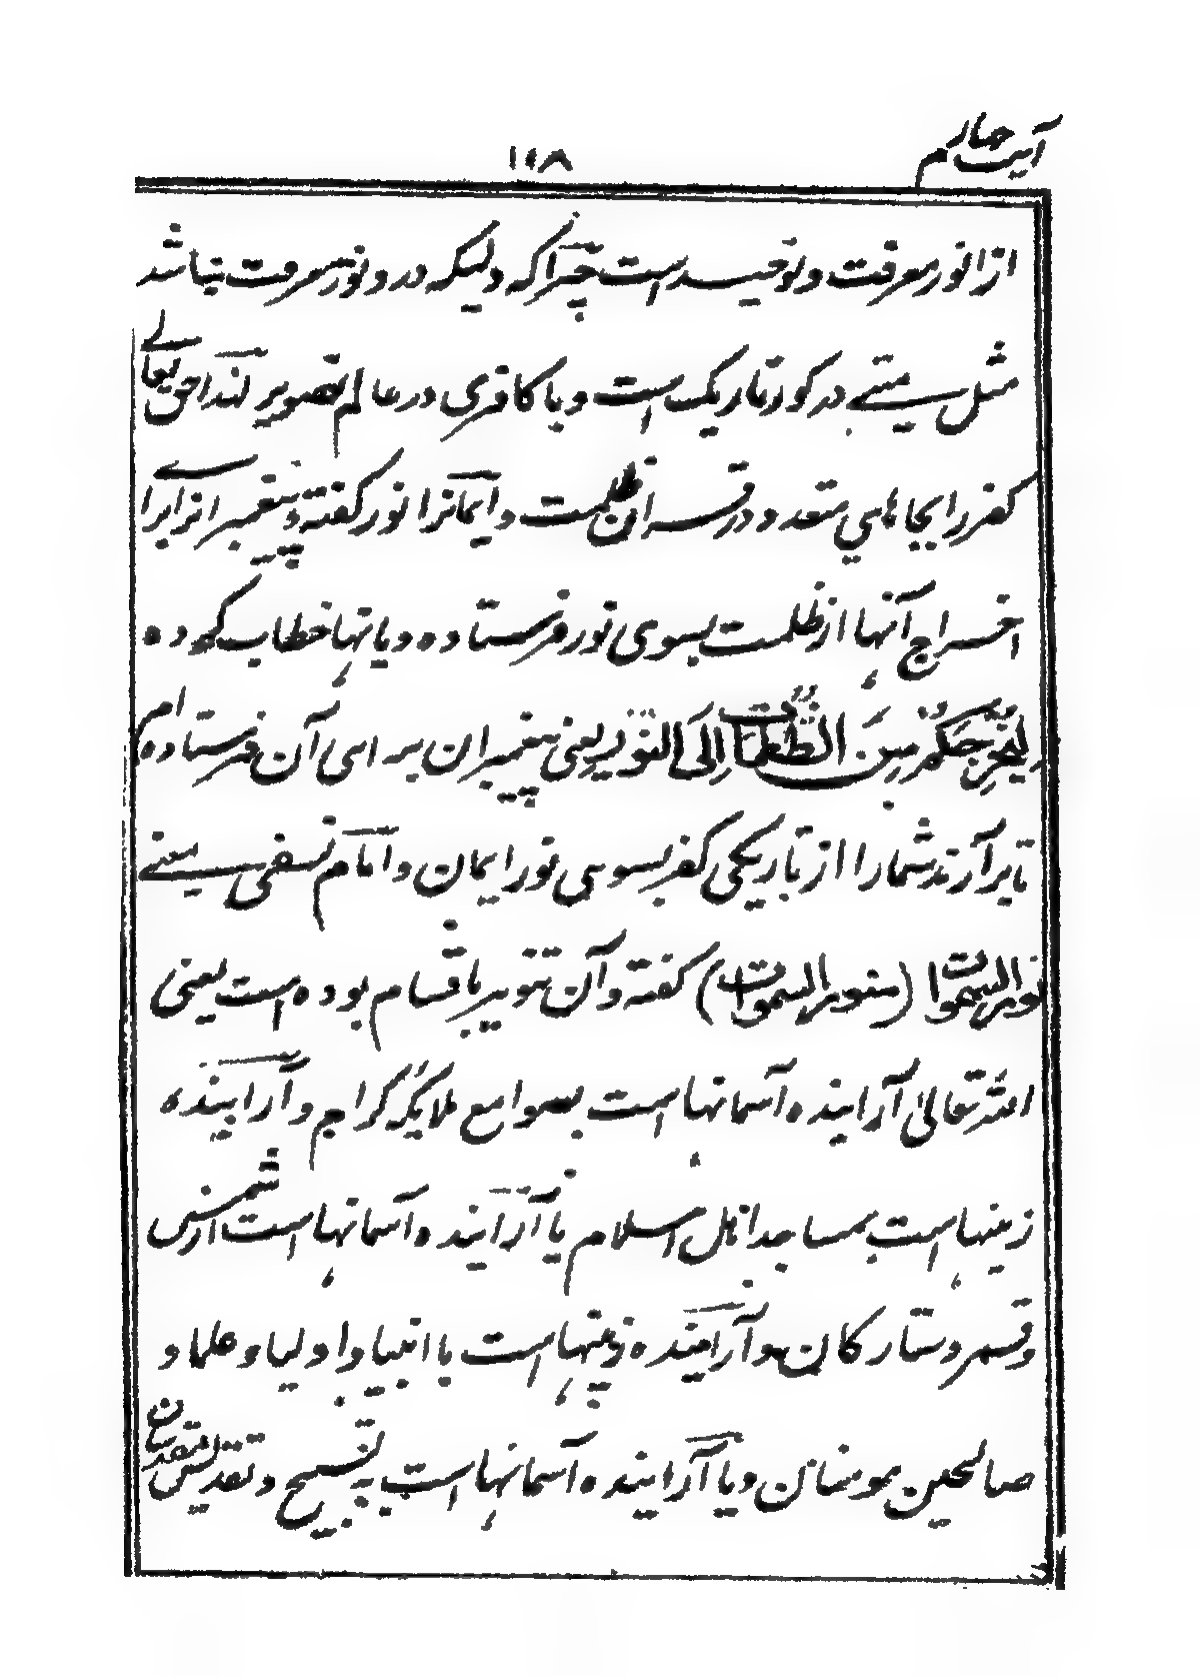 آیت چهارم
۱۱۸
ازانور معرفت و توحیدست چراکه دلیکه درو نور معرفت نباشد
مثل میتے در کور تاریک است و یا کافری در عالم تصویر لنداحق تعالے
کفر را بجاهای متعدد در قرآن ظلمت و ایمانرا نور گفته و پیغمبرانرا برائے
اخراج آنها از ظلمت بسوی نور فرستاده و یا نها خطاب کرده
لِيُخْرِجَكُمْ مِنَ الظُّلُمَاتِ اِلَى النُّوْرِ یعنی پیغمبران برای آن فرستاده ام
تا برآرند شما را از تاریکی کفر بسوی نور ایمان و امام نسفی معنے
نور السموات (منور السموات) گفته و آن تنویر باقسام بوده است یعنی
الله تعالیٰ آراینده آسمانهاست بصوامع ملایکه کرام و آراینده
زمینهاست بمساجد اهل اسلام یا آراینده آسمانهاست از شمس
و قمر و ستارکان و آراینده زمینهاست با انبیا و اولیا و علما و
صالحین مومنان و یا آراینده آسمانهاست به تسبیح و تقدیس